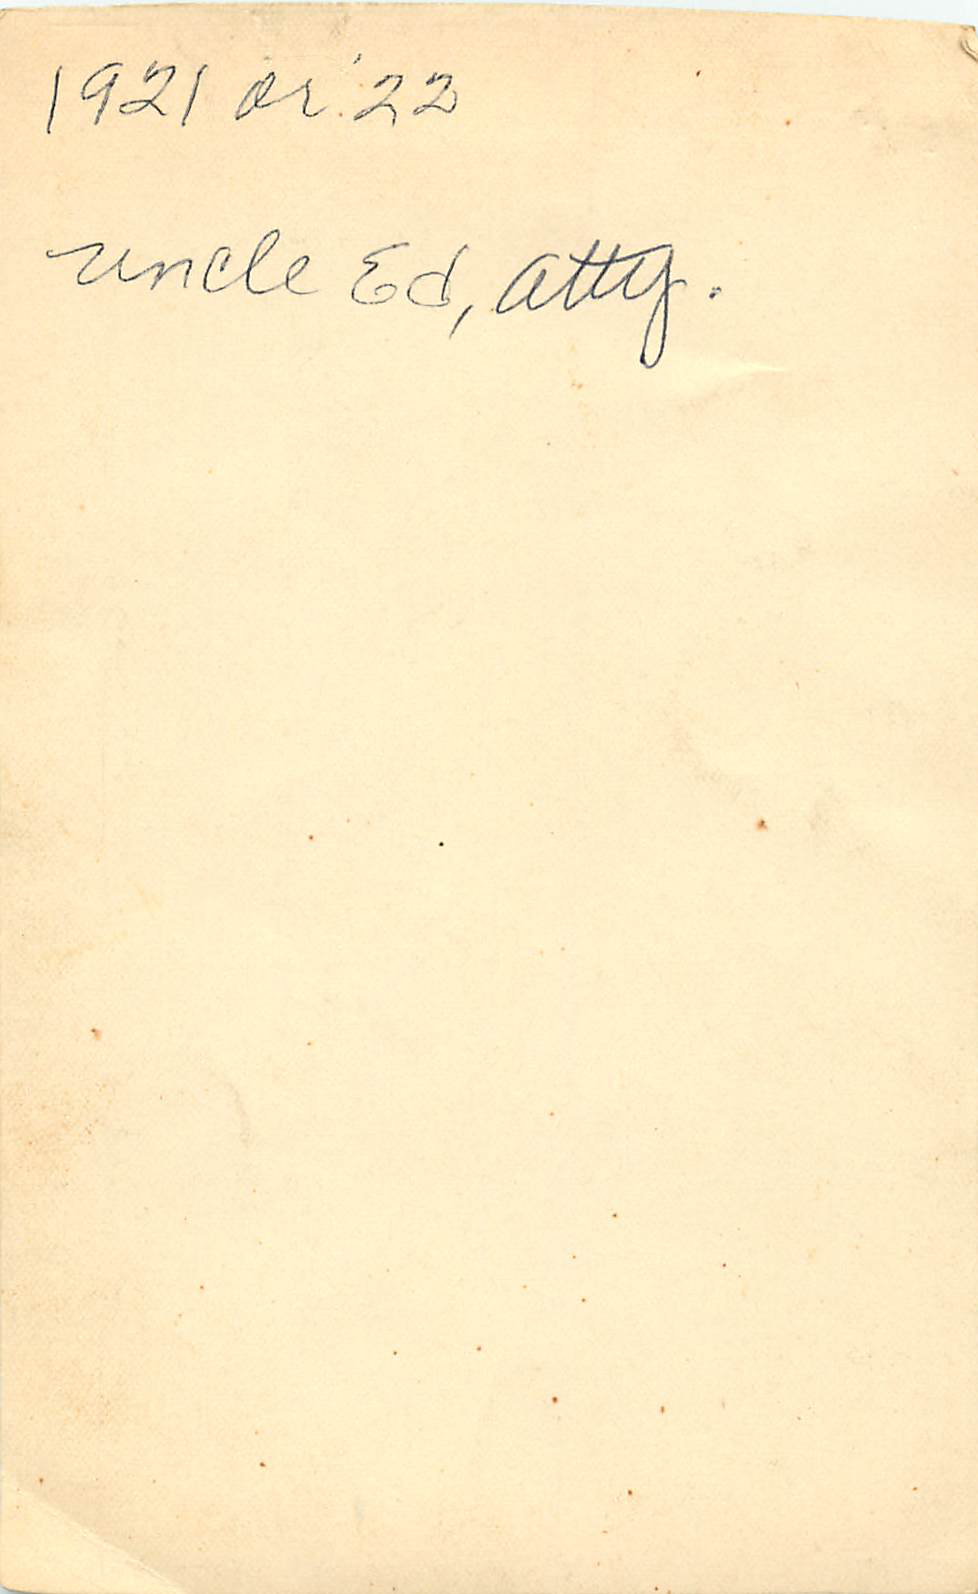 1921 or '22
uncle Ed, atty.